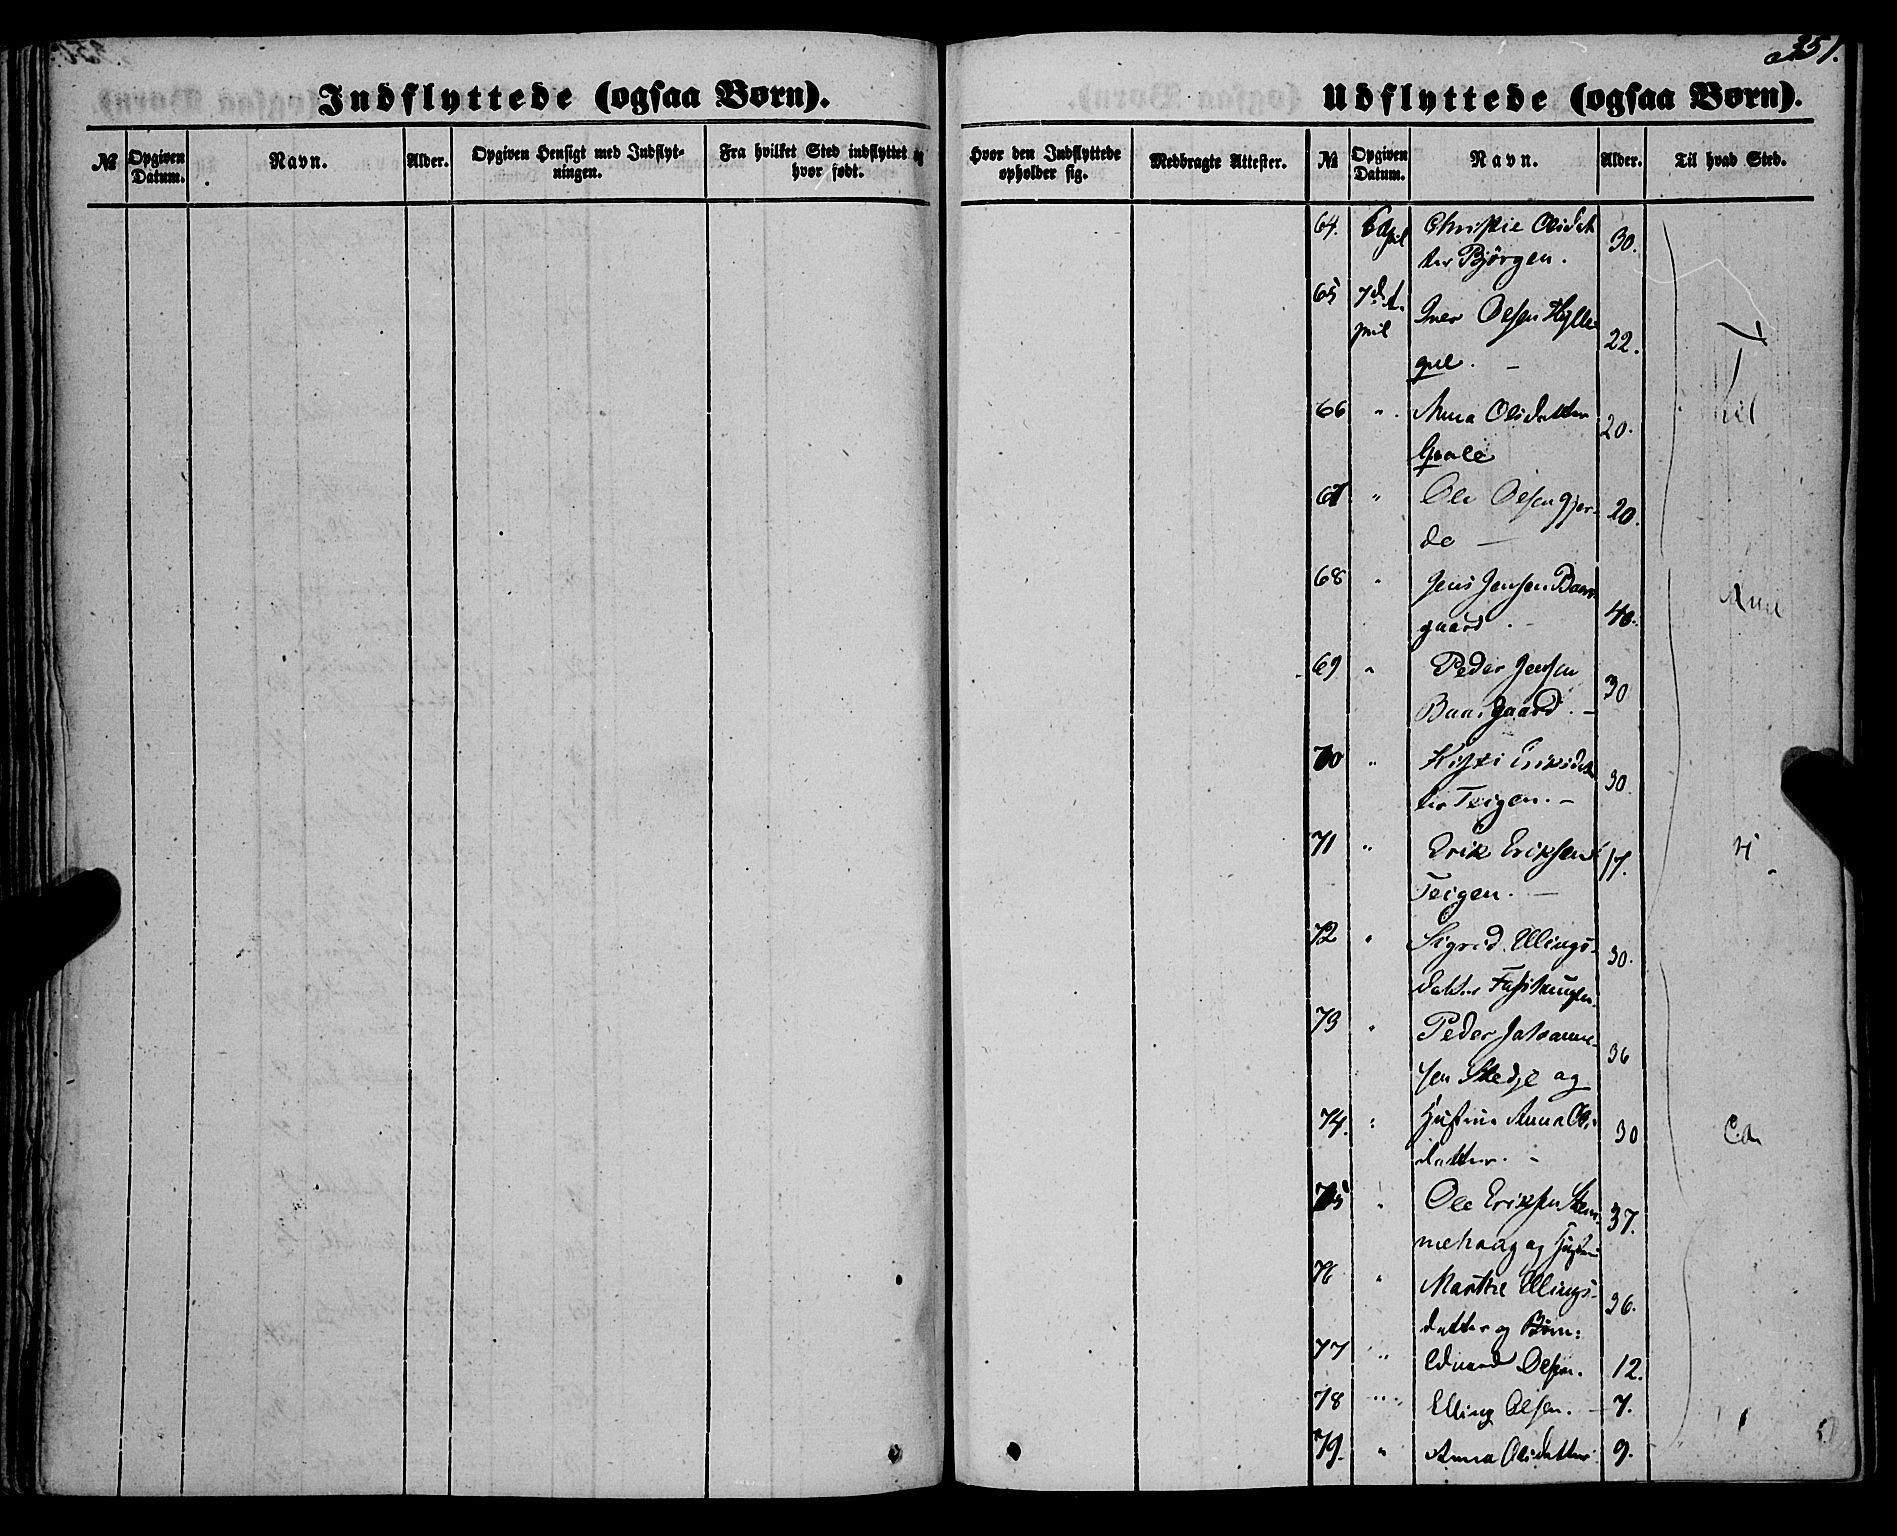 351.
Indflyttede (ogsaa Børn).
№ Opgiven Datum. Navn. Alder. Opgiven Hensigt med Indflyt- ningen. Fra hvilket Sted indflyttet og hvor født.
Hvor den Indflyttede opholder sig. Medbragte Attester.
Udflyttede (ogsaa Børn).
№ Opgiven Datum. Navn. Alder. Til hvad Sted.
64. 6 April Christie Olsdat
ter Bjørgen. 30.
65 7d A- Iver Olsen Hylle
pril 22.
66 " Anna Olsdatter 20.
67 " Ole Olsen Gjer-
de 20.
Til
68 " Jens Jensen Baars-
gaard. 40.
Ame
69 " Peder Jensen
Baarsgaard. 30
70 " Kisti Eriksdat
ter Teigen. 30.
71 " Erik Eriksen 17.
Teigen.
ri
72 " Sigrid Ellings-
datter 30.
73 " Peder Johanne-
sen Stedje og 36
74. " Hustru Anna Ols-
datter. 30
Ca
75 " Ole Eriksen Skam- 37.
mehaug og Hustru
76 " Marthe Ellings-
datter og Børn: 36.
77 " Edvard Olsen. 12.
78 " Elling Olsen. 7.
79. " Anna Olsdatter 9.